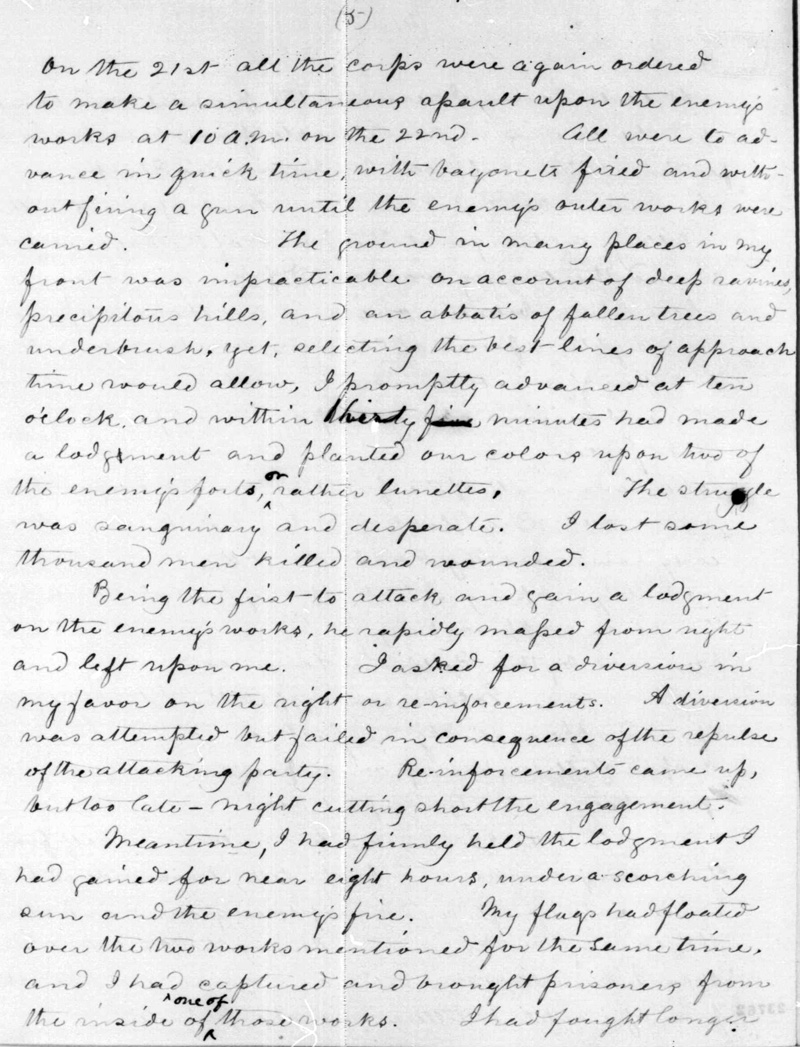 (5)
On the 21st all the corps were again ordered
to make a simultaneous assault upon the enemy's
works at 10 A.M. on the 22nd. All were to ad-
vance in quick time, with bayonets fixed and with-
out firing a gun until the enemy's outer works were
carried. The ground in many places in my
front was impracticable on account of deep ravines,
precipitous hills, and an abbatis of fallen trees and
underbrush, yet, selecting the best lines of approach
time would allow, I promptly advanced at ten
o'clock, and within thirty five minutes had made
a lodgment and planted our colors upon two of
the enemy's forts, or rather lunettes. The struggle
was sanguinary and desperate. I lost some
thousand men killed and wounded.
Being the first to attack and gain a lodgment
on the enemy's works, he rapidly massed from right
and left upon me. I asked for a diversion in
my favor on the right or re-inforcements. A diversion
was attempted but failed in consequence of the repulse
of the attacking party. Re-inforcements came up,
but too late – night cutting short the engagement.
Meantime, I had firmly held the lodgment I
had gained for near eight hours, under a scorching
sun and the enemy's fire. My flags had floated
over the two works mentioned for the same time,
and I had captured and brought prisoners from
the inside of one of those works. I had fought longer
23762